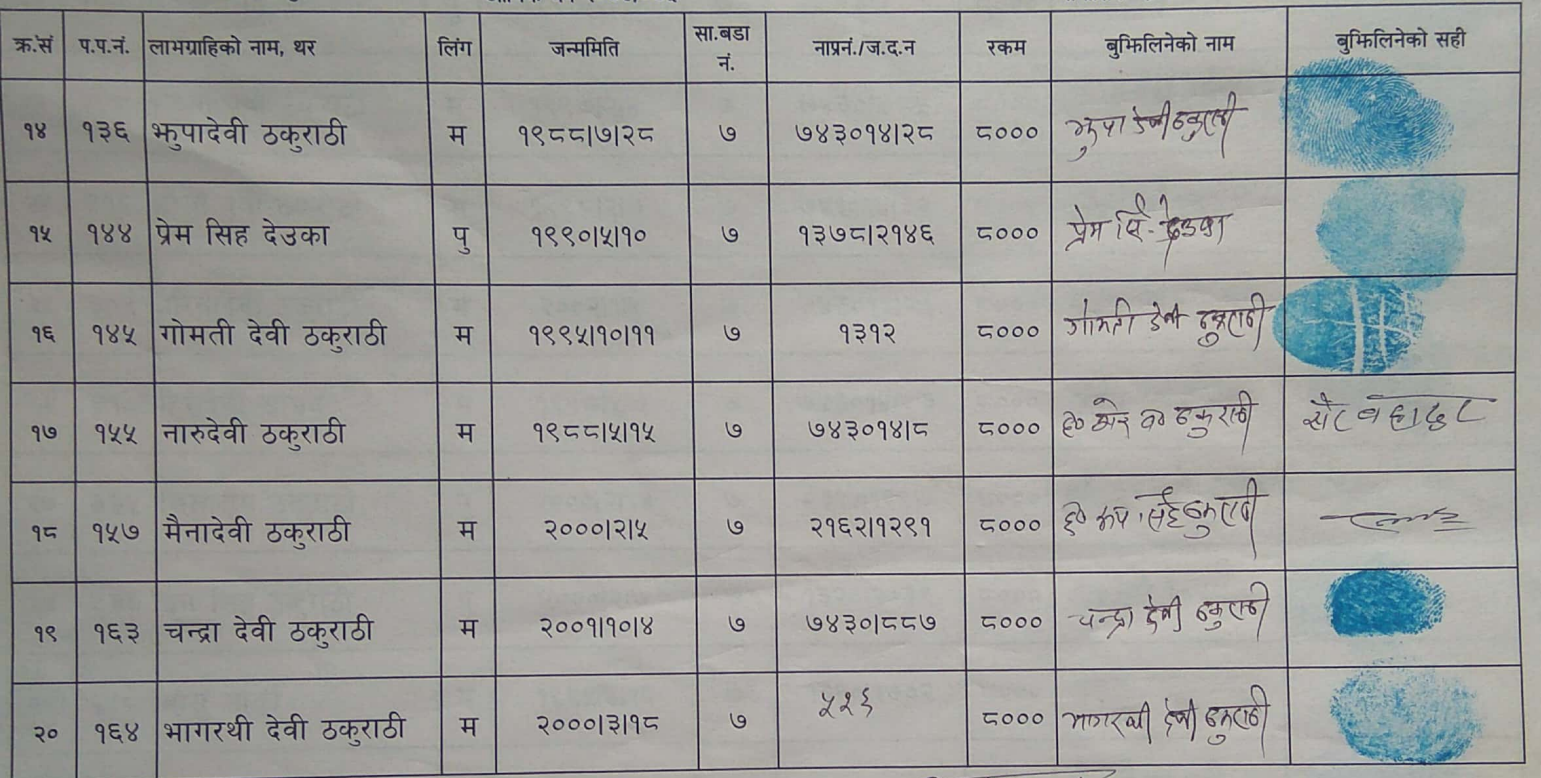 क्र.सं प.प.नं. लाभग्राहिको नाम, थर लिंग जन्ममिति सा.बडा नं. नाप्रनं./ज.द.न रकम बुझिलिनेको नाम बुझिलिनेको सही
१४ १३६ झुपादेवी ठकुराठी म १९८८|७|२८ ७ ७४३०१४|२८ ८००० झुपा देवी ठकुराठी
१५ १४४ प्रेम सिह देउका पु १९९०|५|१० ७ १३७८|२१४६ ८००० प्रेम सिं. देउका
१६ १४५ गोमती देवी ठकुराठी म १९९५|१०|११ ७ १३१२ ८००० गोमती देवी ठकुराठी
१७ १५५ नारुदेवी ठकुराठी म १९८८|५|१५ ७ ७४३०१४|८ ८००० ह० ब० ठकुराठी
१८ १५७ मैनादेवी ठकुराठी म २०००|२|५ ७ २१६२|१२९१ ८००० ह० सिंह ठकुराठी
१९ १६३ चन्द्रा देवी ठकुराठी म २००१|१०|४ ७ ७४३०|८८७ ८००० चन्द्रा देवी ठकुराठी
२० १६४ भागरथी देवी ठकुराठी म २०००|३|१८ ७ ८००० भागरथी देवी ठकुराठी